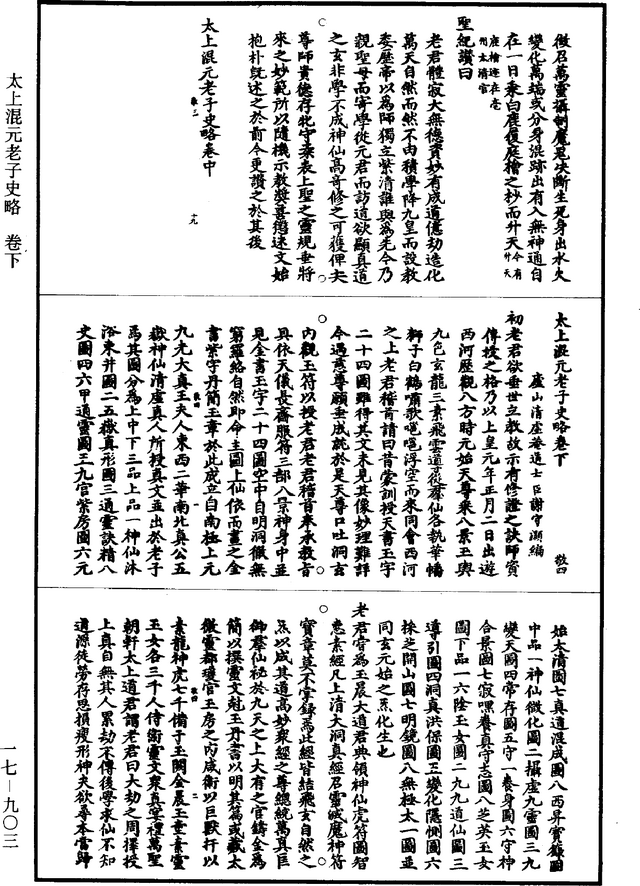 徵召萬靈攝制魔鬼決斷生死身出水火
變化萬端或分身混跡出有入無神通自
在一日乘白鹿復庭檜之抄而升天今有升天
庭檜迹在亳
州太清宮
聖紀讚曰
老君體寂大無復資妙有成道億劫造化
萬天自然而然不由積學降九皇而設教
委歷帝以為師獨立紫清誰與為先今乃
親聖母而寄學從元君而訪道欲顯真道
之玄非學不成神仙高奇修之可獲俾夫
尊師貴德存牝守柔表上聖之靈規垂將
來之妙範所以隨機示教獎喜懲迷文始
抱朴既述之於前今更讚之於其後
太上混元老子史略卷中
太上混元老子史略卷下
廬山清虛菴道士臣謝守灝編
初老君欲垂世立教故示有修證之訣師資
傳授之格乃以上皇元年正月二日出遊
西河歷觀八方時元始天尊乘八景玉輿
九色玄龍三素飛雲道從羣仙各執華幡
獅子白鶴嘯歌邕邕浮空而來同會西河
之上老君稽首請曰昔蒙訓授天書玉字
二十四圖雖得其文未見其像妙理難詳
今遇慈尊願垂成就於是天尊口吐洞玄
內觀玉符以授老君老君稽首奉承教旨
具依天儀長齋服符三部八景神身中並
見金書玉字二十四圖空中自明洞徹無
窮羅絡自然即命主圖上仙依而畫之金
書紫字丹簡玉章於此成立自南極上元
九光大真王夫人東西二華南北真公五
嶽神仙清虛真人所授真文並出於老子
焉其圖分為上中下三品上品一神仙沐
浴東井圖二五嶽真形圖三通靈訣精八
史圖四六甲通靈圖五九宮紫房圖六元
始太清圖七真道混成圖八西昇寶籙圖
中品一神仙微化圖二攝虛九靈圖三九
變天圖四常存圖五守一養身圖六守神
合景圖七寂嘿養真守志圖八芝英玉女
圖下品一六陰玉女圖二九九道仙圖三
導引圖四洞真洪保圖五變化隱惻圖六
採芝開山圖七明鏡圖八無極太一圖並
同玄元始之炁化生也
老君嘗為玉晨大道君典領神仙虎符圖智
惠素經凡上清大洞真經召靈威魔神符
寶章莫不掌錄焉此經皆結飛玄自然之
炁以成其道高妙衆經之尊總統萬真臣
御羣仙祕於九天之上大有之宮鑄金為
簡以撰靈文尅玉丹書以明其篇或藏太
微靈都瓊宮玉房之內咸衛以巨獸扞以
素龍神虎七千備子玉闕金晨玉童素靈
玉女各三千人侍衛靈文衆真宰禮萬聖
朝軒太上道君謂老君曰大劫之周擇授
上真自無其人累劫不傳後學求仙不知
道源徒勞存思損瘦形神夫欲尋本當歸
太上混元老子史略　卷下
一七－九〇三